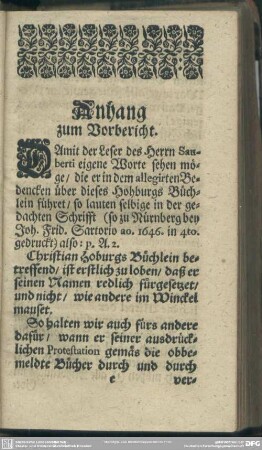 Anhang
zum Vorbericht.
DAmit der Leser des Herrn San-
berti eigene Worte sehen mö-
ge / die er in dem allegirten Be-
dencken über dieses Hohburgs Büch-
lein führet / so lauten selbige in der ge-
dachten Schrifft (so zu Nürnberg bey
Joh. Frid. Sartorio ao. 1646. in 4to.
gedruckt) also: p. A. 2.
Christian Hoburgs Büchlein be-
treffend / ist erstlich zu loben / daß er
seinen Namen redlich fürgesetzet /
und nicht / wie andere im Winckel
mauset.
So halten wir auch fürs andere
dafür / wann er seiner ausdrück-
lichen Protestation gemäs die obbe-
meldte Bücher durch und durch
e ver-
DFG